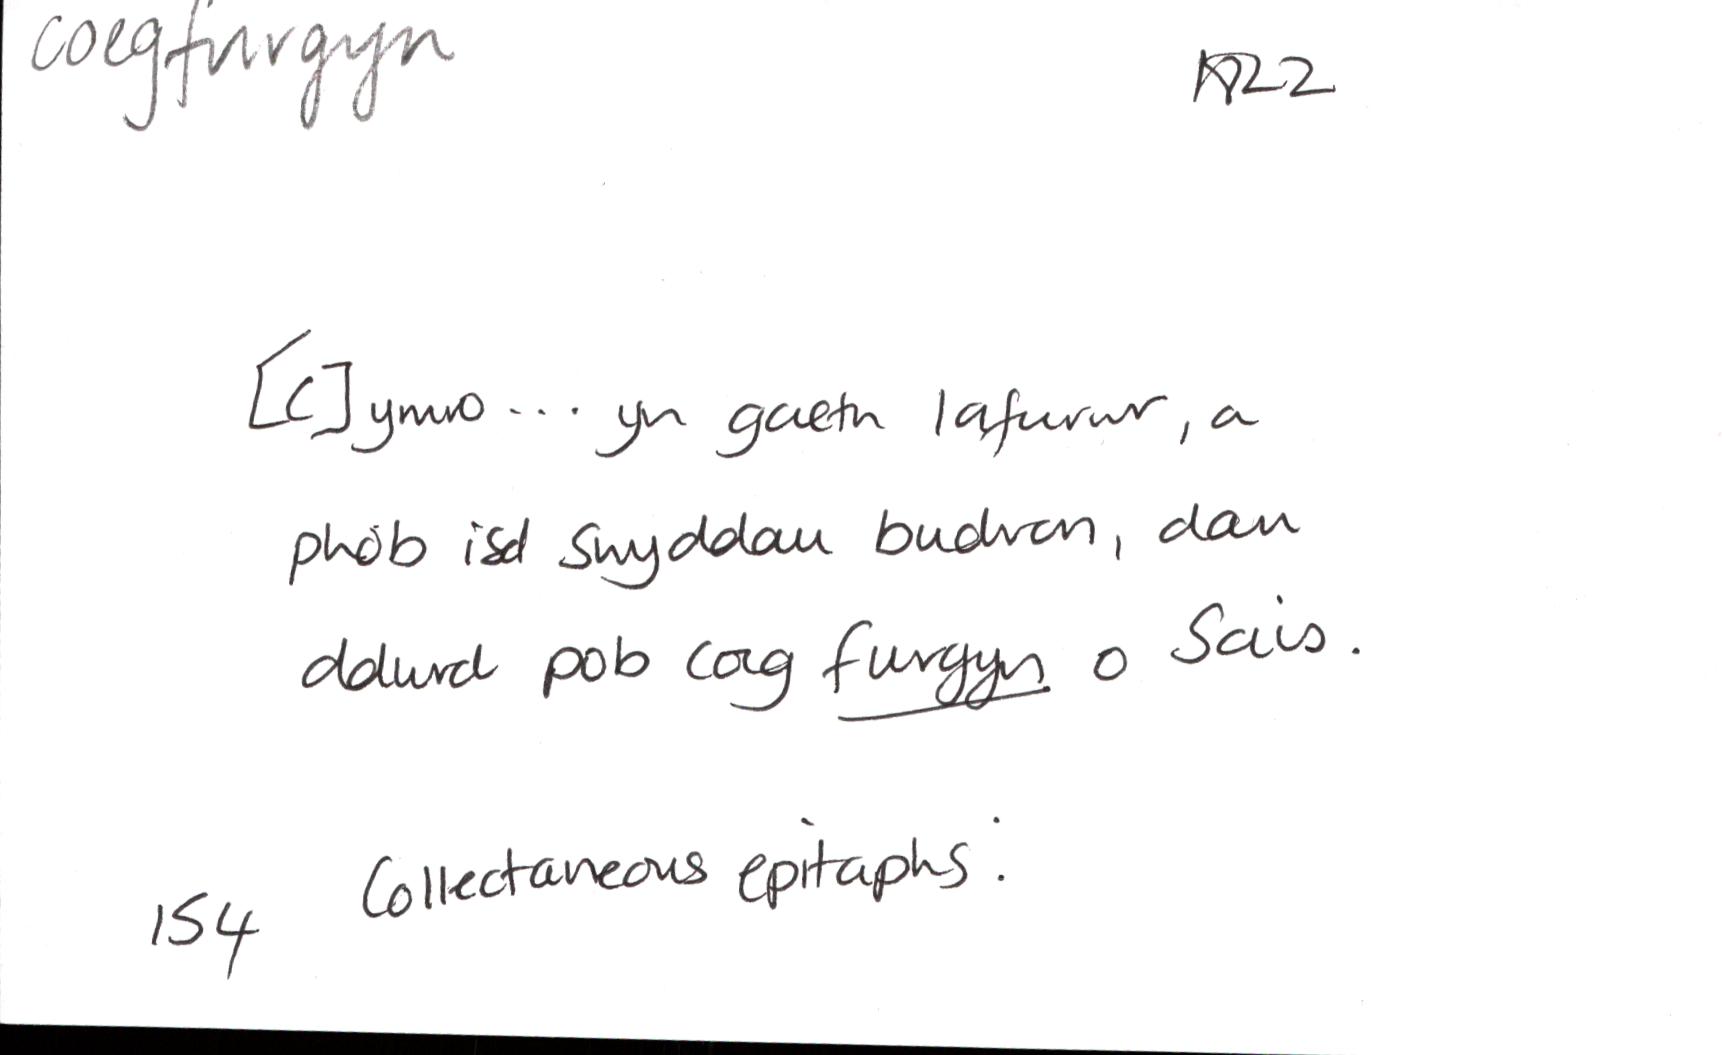 coegfurgyn
[C]ymro... yn gaeth lafurwr, a
phôb isd swyddau budron, dan
ddwrd pob coeg furgyn o Sais.
Collectaneous epitaphs:
154